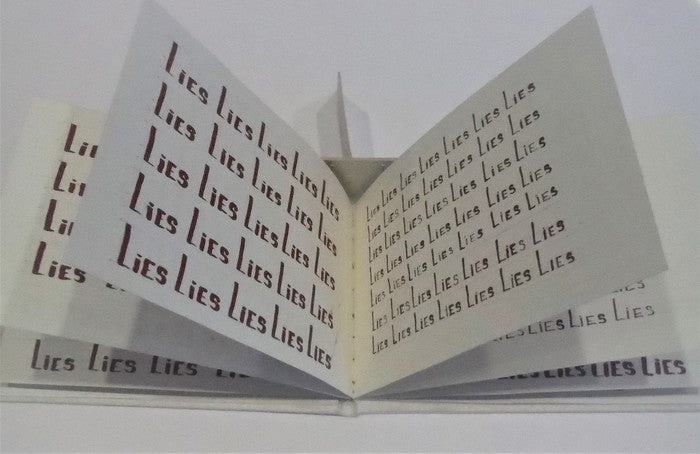 Lies
Lies Lies Lies Lies
Lies Lies Lies Lies Lies
Lies Lies Lies Lies Lies
Lies Lies Lies Lies Lies
Lies Lies Lies Lies Lies
Lies Lies Lies Lies Lies
Lies Lies Lies Lies Lies Lies Lies
Lies Lies Lies Lies Lies Lies
Lies Lies Lies Lies Lies Lies
Lies Lies Lies Lies Lies Lies
Lies Lies Lies Lies Lies Lies Lies
Lies Lies Lies Lies Lies Lies Lies
Lies Lies Lies Lies Lies Lies Lies
Lies
Lies Lies Lies Lies
Lies Lies Lies Lies